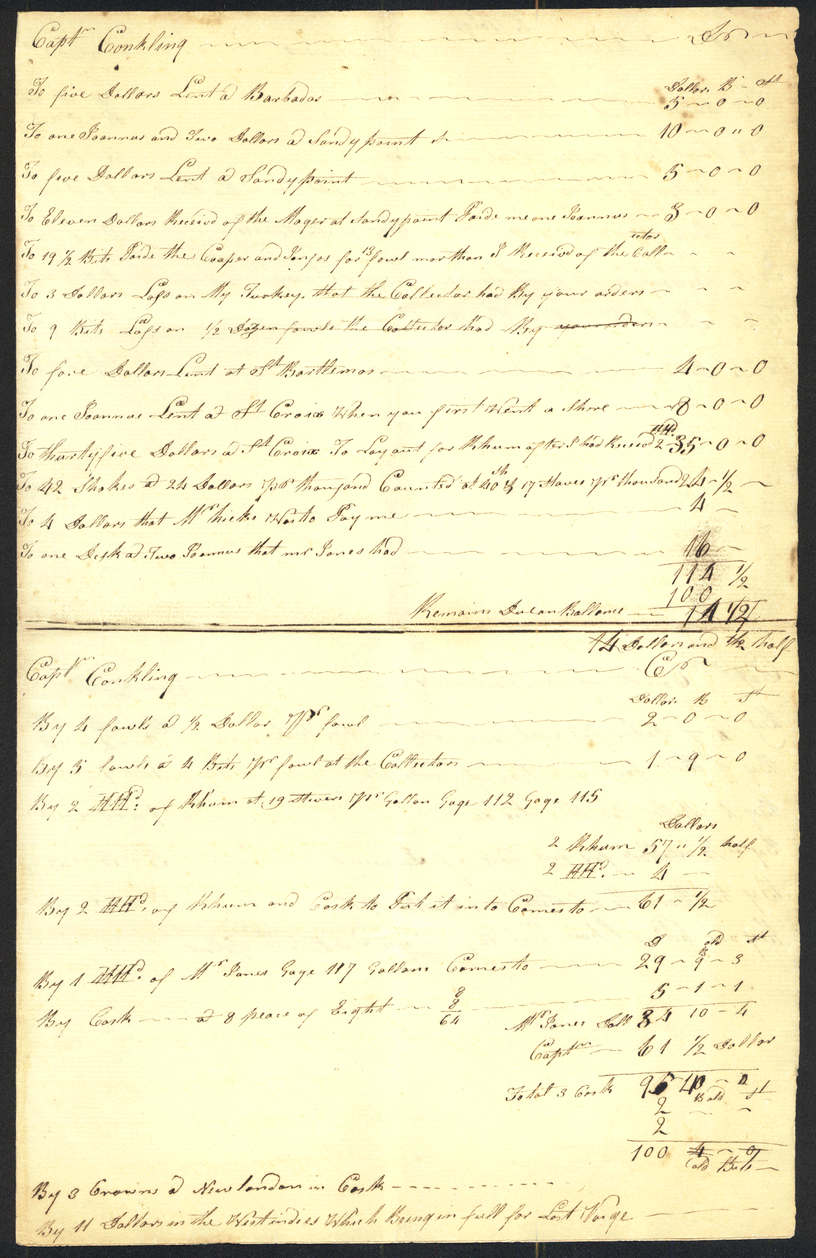 Captn Conkling Dr
Dollars B St
To five Dollars Lent a Barbados 5 - 0 - 0
To one Joannus and Two Dollars a Sandy point 10 - 0 " 0
To five Dollars Lent a Sandy point 5 - 0 - 0
To Eleven Dollars Receivd of the Mager at Sandy point Paide me one Joannus 3 - 0 - 0
To 19 1/2 Bits Paide the Cooper and for 13 fowl mor than I Receivd of the Collector
To 3 Dollars Loss on My Turkeys that the Collector had By your orders
To 9 Bits Loss on 1/2 Dozen fowls the Collector had By your orders
To fore Dollars Lent at St Bartlemos 4 - 0 - 0
To one Joannus Lent a St Croix When you first Went a Shore 8 - 0 - 0
To thurtyfive Dollars a St Croix To Lay out for Rhum after I had Receivd 2 HHd 35 - 0 - 0
To 42 Shokes a 24 Dollars pr thousand Counted at 40 Sh & 17 Staves pr thousand 24 - 1/2
To 4 Dollars that Mr hicks Was to Pay me 4
To one Desk a Two Joannus that mr Jones had 16
114 1/2
100
Remains Due on Ballance 14 1/2
14 Dollars and the half
Captn Conkling Cr
Dollars B St
By 4 fowls a 1/2 Dollar pr fowl 2 - 0 - 0
By 5 fowls a 4 Bits pr fowl at the Collectors 1 - 9 - 0
By 2 HHd: of Rhum at 19 Stivers pr Gallon Gage 112 Gage 115
Dollars
2 Rhum 57 " 1/2 half
2 HHd. 4
By 2 HHd. of Rhum and Cask to Put it in to Comes to 61 - 1/2
D old B St
By 1 HHd. of Mr Jones Gage 117 Gallons Comes to 29 - 9 - 3
5 - 1 - 1
By Cask at 8 peace of Eight 8
8
64
Mr Jones Doll 34 10 - 4
Captn 61 1/2 Dollar
Total 3 Cask 95
2 B old St
2
100 4 - 0
old Bits
By 3 Crowns a New london in Cash
By 11 Dollars in the West indies Which Being in full for Last Voige